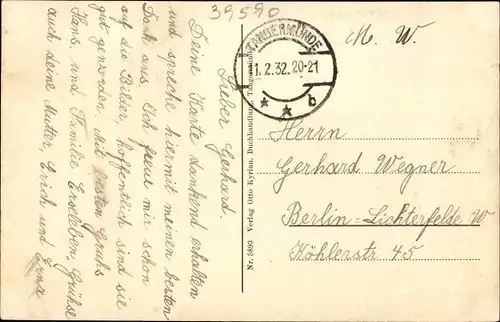 39590
M. W.
TANGERMÜNDE
11.2.32.20-21
* * b
Lieber Gerhard.
Deine Karte dankend erhalten
und spreche hiermit meinen besten
Dank aus. Ich freue mir schon
auf die Bilder, hoffentlich sind sie
gut geworden. Mit besten Gruß
Hans, und Familie Erxleben, Grüße
auch deine Mutter, Erich und
Nr. 5893 Verlag Otto Kyrian, Buchhandlung, Tangermünde
Herrn
Gerhard Wegner
Berlin-Lichterfelde W
Köhlerstr 45